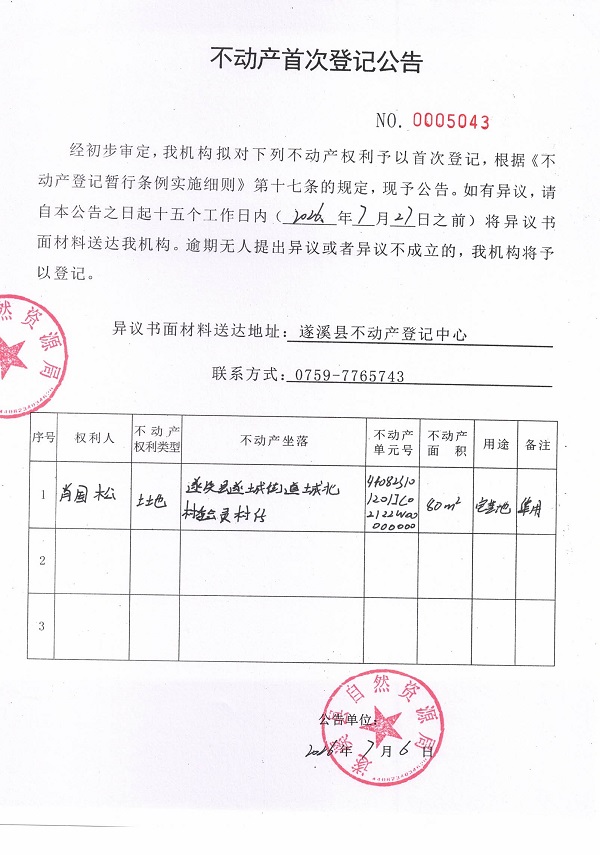 不动产首次登记公告
NO. 0005043
经初步审定，我机构拟对下列不动产权利予以首次登记，根据《不
动产登记暂行条例实施细则》第十七条的规定，现予公告。如有异议，请
自本公告之日起十五个工作日内（2026年7月27日之前）将异议书
面材料送达我机构。逾期无人提出异议或者异议不成立的，我机构将予
以登记。
异议书面材料送达地址：遂溪县不动产登记中心
联系方式：0759-7765743
序号 权利人 不动产权利类型 不动产坐落 不动产单元号 不动产面积 用途 备注
1 肖国松 土地 遂溪县遂城街道城北 80m² 宅基地
2
3
公告单位：
2026年7月6日
遂溪县自然资源局
然资源局